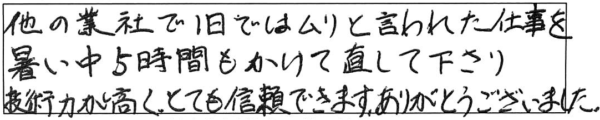 他の業社で1日ではムリと言われた仕事を
暑い中5時間もかけて直して下さり
技術力が高く、とても信頼できます。ありがとうございました。